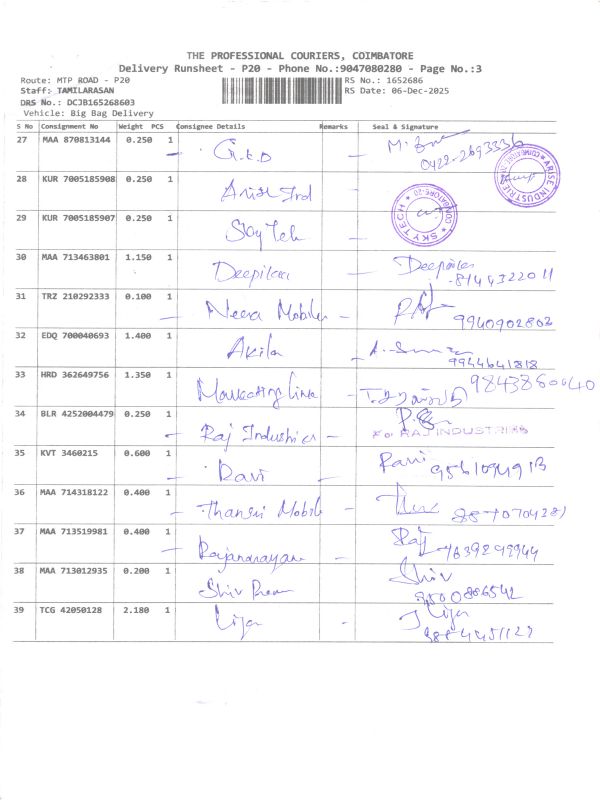 THE PROFESSIONAL COURIERS, COIMBATORE
Delivery Runsheet - P20 - Phone No.:9047080280 - Page No.:3
Route: MTP ROAD - P20 RS No.: 1652686
Staff: TAMILARASAN RS Date: 06-Dec-2025
DRS No.: DCJB165268603
Vehicle: Big Bag Delivery
S No Consignment No Weight PCS Consignee Details Remarks Seal & Signature
27 MAA 870813144 0.250 1 G.E.D
0422-2693336
28 KUR 7005185908 0.250 1 Arise Ind ARISE INDUSTRIES
29 KUR 7005185907 0.250 1 Sky Tech SKYTECH
30 MAA 713463801 1.150 1 Deepika Deepika
8144322011
31 TRZ 210292333 0.100 1 Neera Mobiles
9940902803
32 EDQ 700040693 1.400 1 Akila
9944641818
33 HRD 362649756 1.350 1 Marketing Link
34 BLR 4252004479 0.250 1 Raj Industries For RAJ INDUSTRIES
35 KVT 3460215 0.600 1 Ravi Ravi
36 MAA 714318122 0.400 1 Thansri Mobile
37 MAA 713519981 0.400 1 Rajanarayan Raj
38 MAA 713012935 0.200 1 Shiv Shiv
9500886542
39 TCG 42050128 2.180 1 Lija Lija